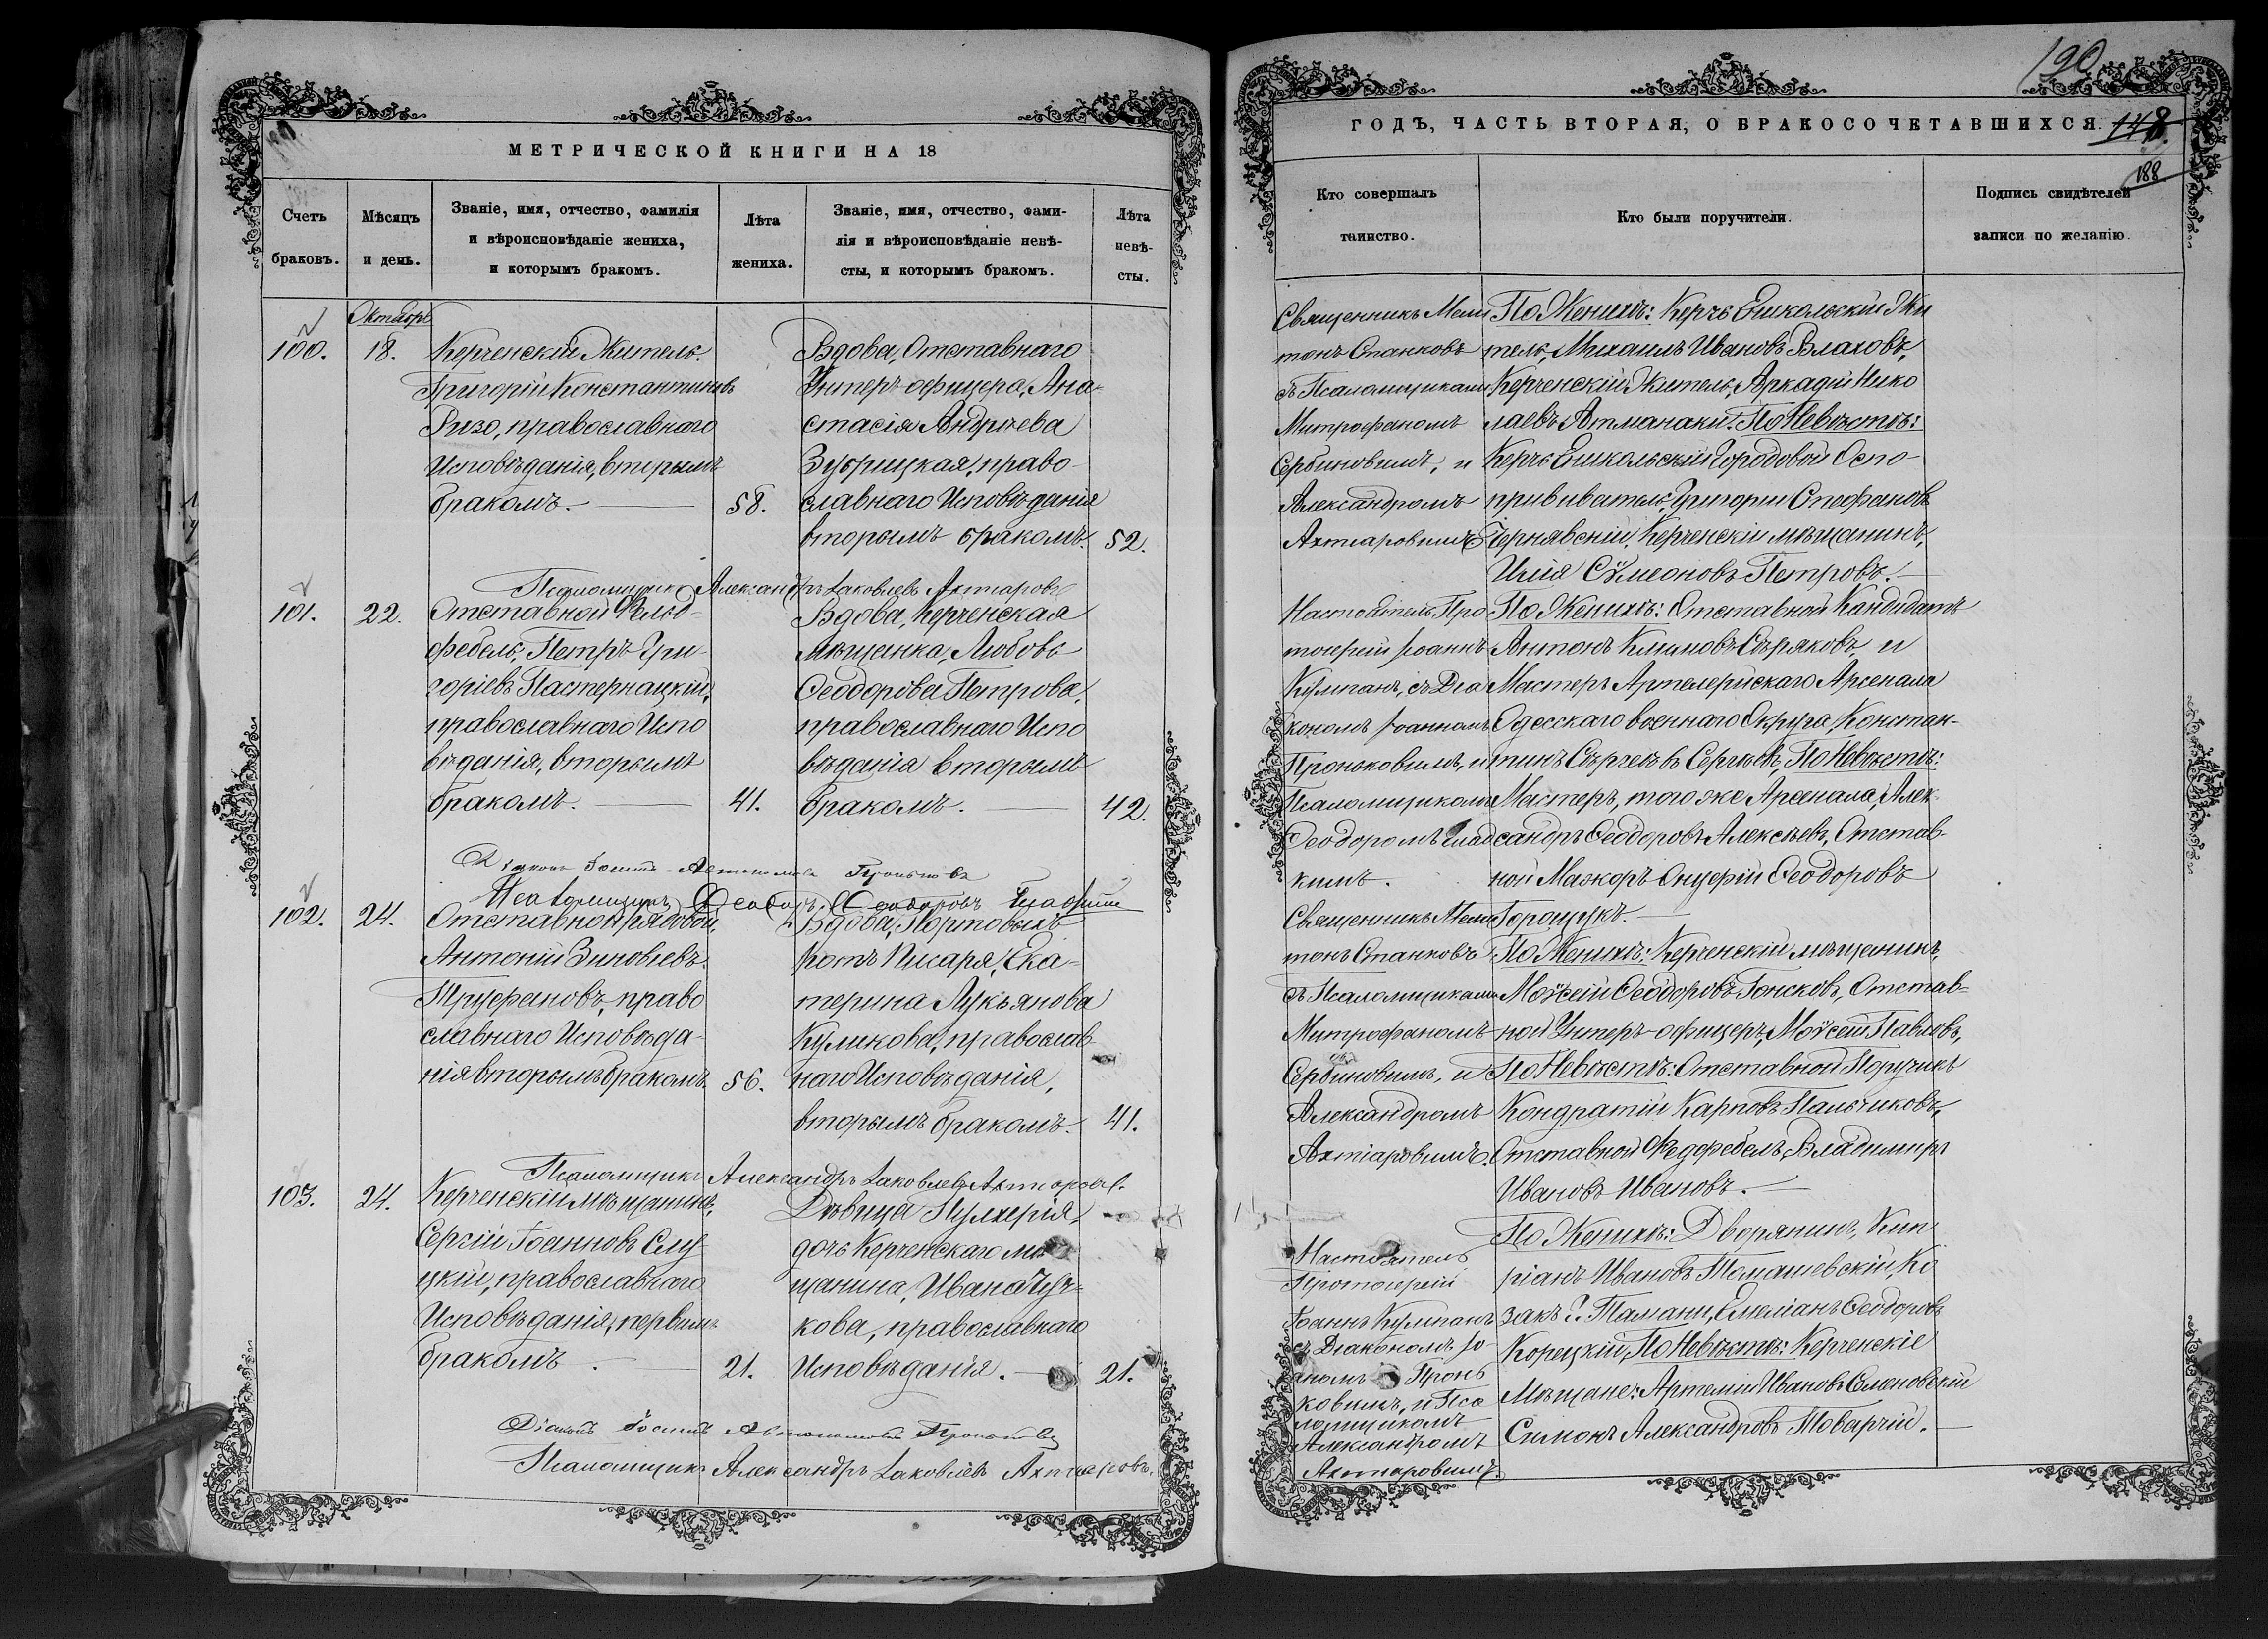 МЕТРИЧЕСКОЙ КНИГИ НА 18
Счетъ браковъ.
Мѣсяцъ и день.
Званіе, имя, отчество, фамилія
и вѣроисповѣданіе жениха,
и которымъ бракомъ.
Лѣта
жениха.
Званіе, имя, отчество, фами-
лія и вѣроисповѣданіе невѣ-
сты, и которымъ бракомъ.
Лѣта
невѣ-
сты.
Октябрь
100.
18.
Керченскій Житель.
Григорій Константиновъ
Ризо, православнаго
Исповѣданія, вторымъ
бракомъ.
58.
Вдова, Отставнаго
Унтеръ-офицера, Ана-
стасія Андреева
Зубрицкая, право-
славнаго Исповѣданія
вторымъ бракомъ.
52.
Псаломщикъ Александръ Іаковлевъ Ахтаровъ
101.
22.
Отставной Фельд-
фебель, Петръ Гри-
горіевъ Пастернацкій,
православнаго Испо
вѣданія, вторымъ
бракомъ.
41.
Вдова, Керченская
Мѣщанка, Любовь
Ѳеодорова Петрова,
православнаго Испо
вѣданія вторымъ
бракомъ.
42.
Діаконъ Іоаннъ Пронько
Псаломщикъ Ѳеодоръ Ѳеодоровъ
102.
24.
Отставной рядовой,
Антоній Зиновіевъ
Труфановъ, право
славнаго Исповѣда-
нія вторымъ бракомъ.
56.
Вдова, Портовыхъ
ротъ Писаря, Ека-
терина Лукьянова
Куликова, православ-
наго Исповѣданія,
вторымъ бракомъ.
41.
Псаломщикъ Александръ Іаковлевъ Ахтаровъ.
103.
24.
Керченскій мѣщанинъ,
Сергій Іоанновъ Слу-
цкій, православнаго
Исповѣданія, первымъ
бракомъ.
21.
Дѣвица Пулхерія,
дочь Керченскаго мѣ
щанина, Ивана
кова, православнаго
Исповѣданія.
21.
Діаконъ Іоаннъ
Псаломщикъ Александръ Іаковлевъ Ахтаровъ.
190
148.
188
ГОДЪ, ЧАСТЬ ВТОРАЯ, О БРАКОСОЧЕТАВШИХСЯ.
Кто совершалъ
таинство.
Кто были поручители.
Подпись свидѣтелей
записи по желанію.
Священникъ Мели
тонъ Станковъ
съ Псаломщиками
Митрофаномъ
Сербиновымъ, и
Александромъ
Ахтаровымъ
По Женихѣ: Керчь Еникольскій Жи
тель, Михаилъ Ивановъ Влаховъ,
Керченскій Житель, Аркадій Нико
лаевъ Атманаки. По Невѣстѣ:
Керчь Еникольскій Городовой Оспо-
прививатель, Григорій Стефановъ
Чернявскій, Керченскій мѣщанинъ,
Илія Сѵмеоновъ Петровъ.
Настоятель Про
тоіерей Іоаннъ
Кумпанъ, съ Діа
кономъ Іоанномъ
Проньковымъ, и
Псаломщикомъ
Ѳеодоромъ Глад
кимъ.
По Женихѣ: Отставной Кандидатъ
Антонъ Климовъ Сѣряковъ, и
Мастеръ Артелерійскаго Арсенала
Одесскаго военнаго Округа, Констан-
тинъ Сергеевъ Сергѣевъ, По Невѣстѣ:
Мастеръ, того же Арсенала, Алек-
сандръ Ѳеодоровъ Алексѣевъ, Отстав-
ной Мажоръ Онуфрій Ѳеодоровъ
Горощукъ.
Священникъ Мели
тонъ Станковъ
съ Псаломщиками
Митрофаномъ
Сербиновымъ, и
Александромъ
Ахтіаровымъ.
По Женихѣ: Керченскій мѣщанинъ,
Моѵсей Ѳеодоровъ Гонсковъ, Отстав-
ной Унтеръ-офицеръ, Моѵсей Павловъ,
По Невѣстѣ: Отставной Поручикъ
Кондратій Карповъ Пальчиковъ,
Отставной Федфебель, Владимиръ
Ивановъ Ивановъ.
Настоятель
Протоіерей
Іоаннъ Кумпанъ
съ Діакономъ Іо-
анномъ Пронь
ковымъ, и Пса
ломщикомъ
Александромъ
Ахтаровымъ
По Женихѣ: Дворянинъ, Кип
ріанъ Ивановъ Томашевскій, Ко
закъ г. Тамани, Емеліанъ Ѳеодоровъ
Корецкій, По Невѣстѣ: Керченскіе
Мѣщане: Артемій Ивановъ Семеновскій
Симонъ Александровъ Товарчій.